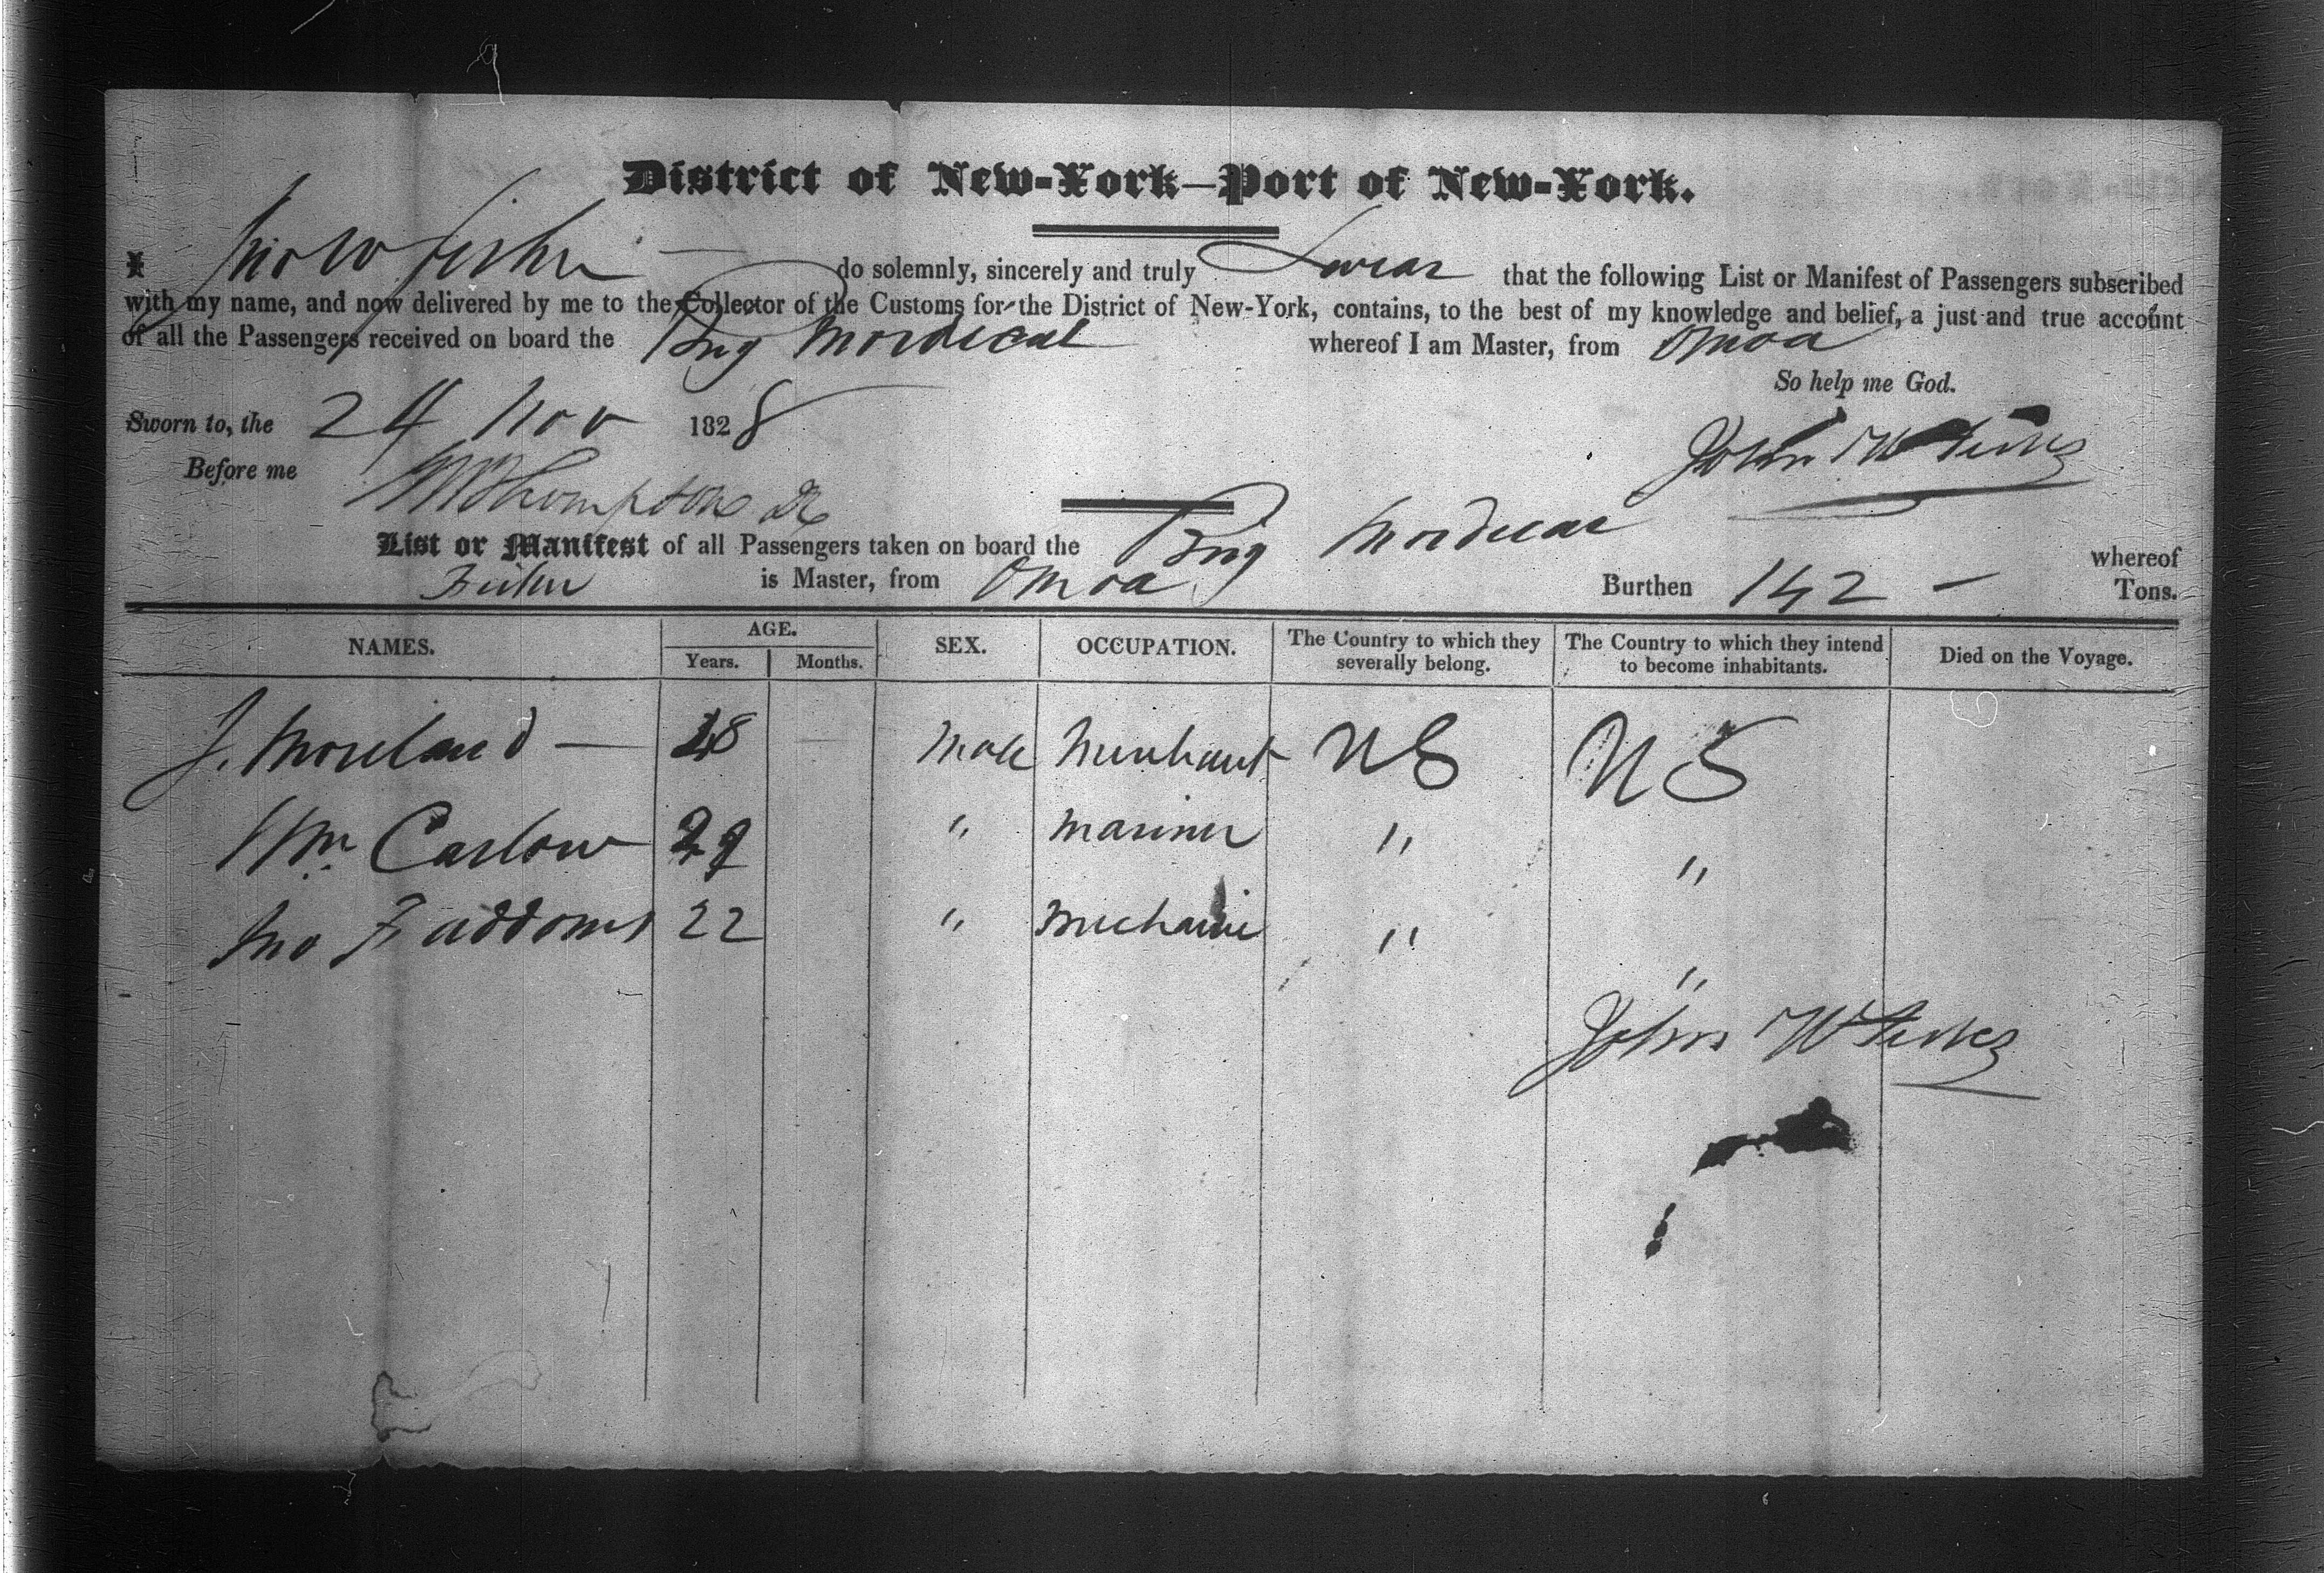 District of New-York—Port of New-York.
I Jno W Fisher do solemnly, sincerely and truly Swear that the following List or Manifest of Passengers subscribed
with my name, and now delivered by me to the Collector of the Customs for the District of New-York, contains, to the best of my knowledge and belief, a just and true account
of all the Passengers received on board the Brig Mordecai whereof I am Master, from Omoa
So help me God.
Sworn to, the 24 Nov 1828
John W
Before me Thompson
List or Manifest of all Passengers taken on board the Brig Mordecai whereof
Fisher is Master, from Omoa Burthen 142 — Tons.
NAMES. AGE. SEX. OCCUPATION. The Country to which they severally belong. The Country to which they intend to become inhabitants. Died on the Voyage.
Years. Months.
J. Moreland — 48 Male Merchant US US
Wm Carlow 29 " Mariner " "
Jno Faddoms 22 " Mechanic " "
John W